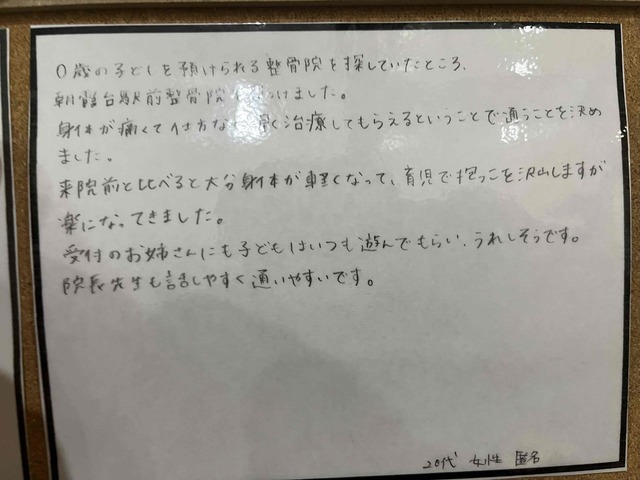 0歳の子どもを預けられる整骨院を探していたところ、
朝霞台駅前整骨院 つけました。
身体が痛くて仕方な 早く治療してもらえるということで通うことを決め
ました。
来院前と比べると大分身体が軽くなって、育児で抱っこを沢山しますが
楽になってきました。
受付のお姉さんにも子どもはいつも遊んでもらい、うれしそうです。
院長先生も話しやすく通いやすいです。
20代 女性 匿名